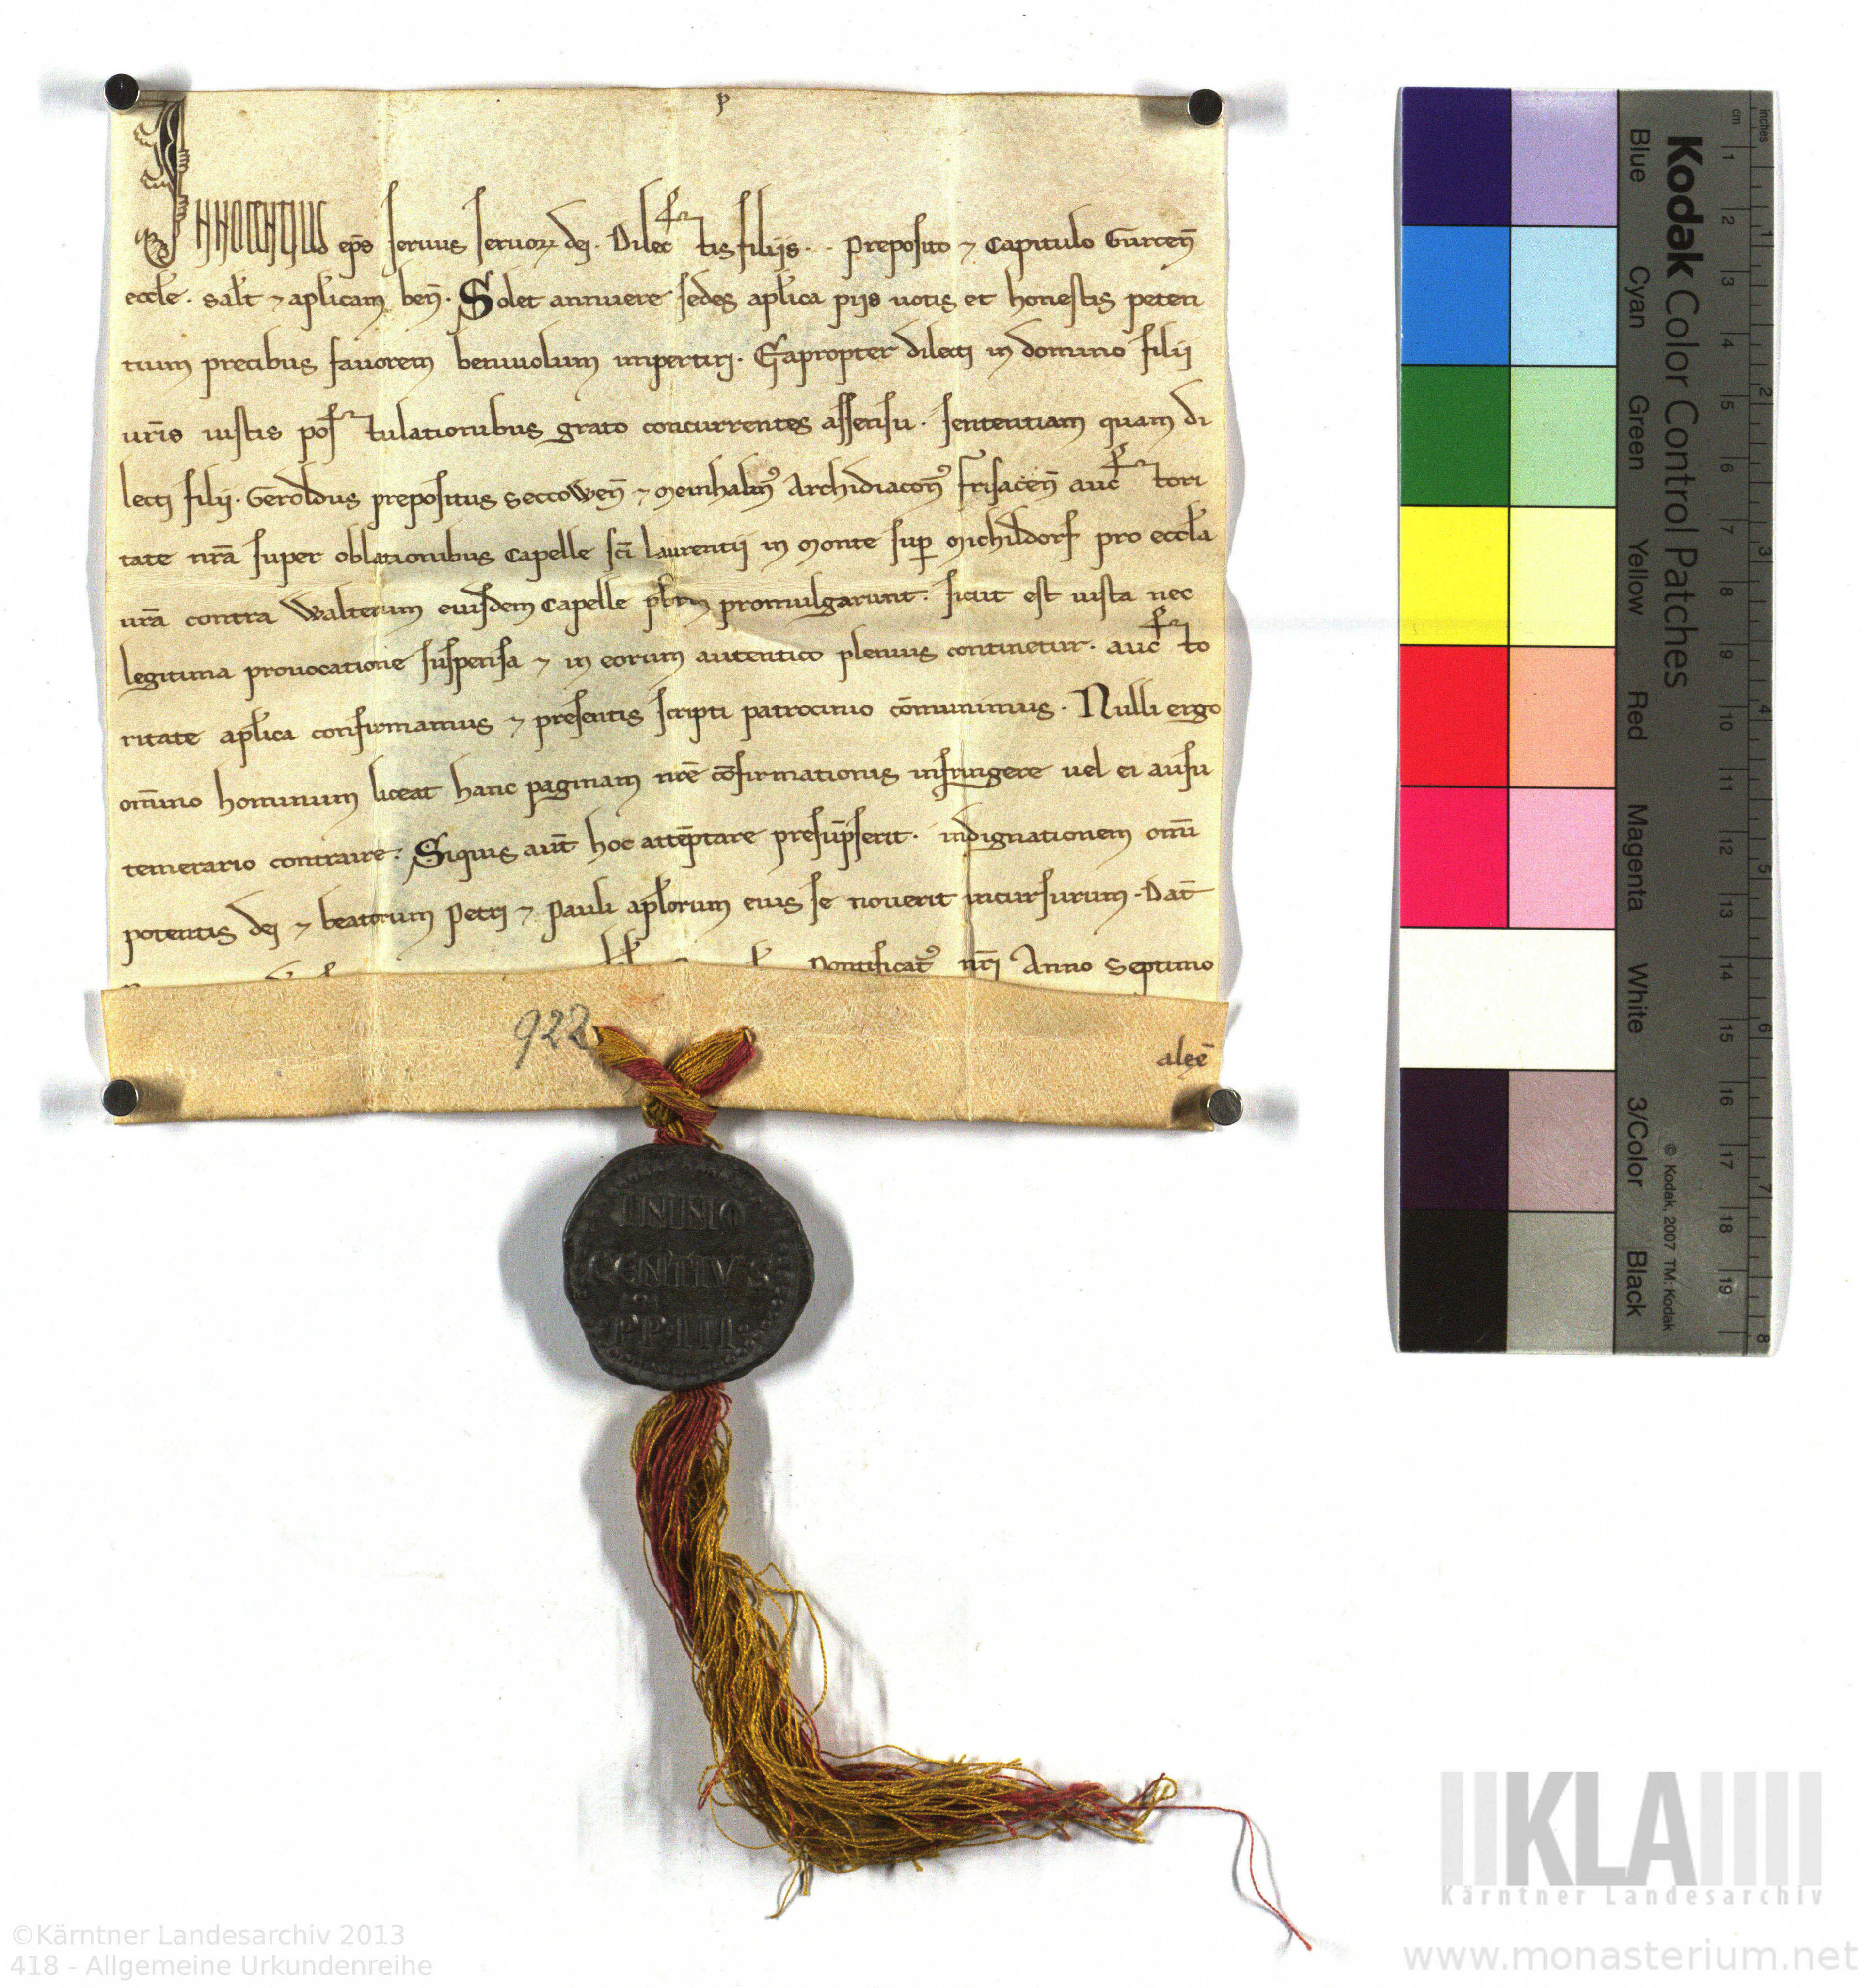 p
INNOCENTIUS ep̅s seruus seruoꝝ dei. Dilectis filiis. . . Preposito ⁊ Capitulo Gurcen̅
eccl̅e. salt̅ ⁊ apl̅icam ben̅. Solet annuere sedes apl̅ica piis uotis et honestis peten
tium precibus fauorem beniuolum impertiri. Eapropter dilecti in domino filii
ur̅is iustis postulationibus grato concurrentes assensu. sententiam quam di
lecti filii. Geroldus prepositus Seccowen̅ ⁊ Archidiacon̅ꝰ Frisacen̅ auctori
tate nr̅a super oblationibus Capelle sc̅i Laurentii in Monte suꝑ Michildorf pro eccl̅a
ur̅a contra Walterum eiusdem Capelle pb̅rm promulgarunt. sicut est iusta nec
legitima prouocatione suspensa ⁊ in eorum autentico plenius continetur. aucto
ritate apl̅ica confirmamus ⁊ presentis scripti patrocinio co̅munimus. Nulli ergo
om̅ino hominum liceat hanc paginam nr̅e co̅firmationis infringere uel ei ausu
temerario contraire. Siquis aut̅ hoc atte̅ptare presu̅pserit. indignationem om̅i
potentis dei ⁊ beatorum Petri ⁊ Pauli apl̅orum eius se nouerit incursurum. Dat̅
Pontificatꝰ nr̅i Anno Septimo
922
INNO
CENTIVS
PP·III
Kodak Color Control Patches
Blue Cyan Green Yellow Red Magenta White 3/Color Black
© Kodak, 2007 TM: Kodak
inches 1 2 3 4 5 6 7 8
cm 1 2 3 4 5 6 7 8 9 10 11 12 13 14 15 16 17 18 19
KLA
Kärntner Landesarchiv
©Kärntner Landesarchiv 2013
418 - Allgemeine Urkundenreihe
www.monasterium.net